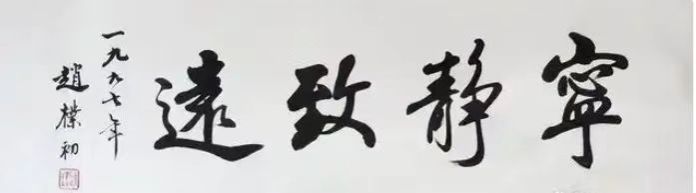 寧靜致遠
一九九七年
趙樸初